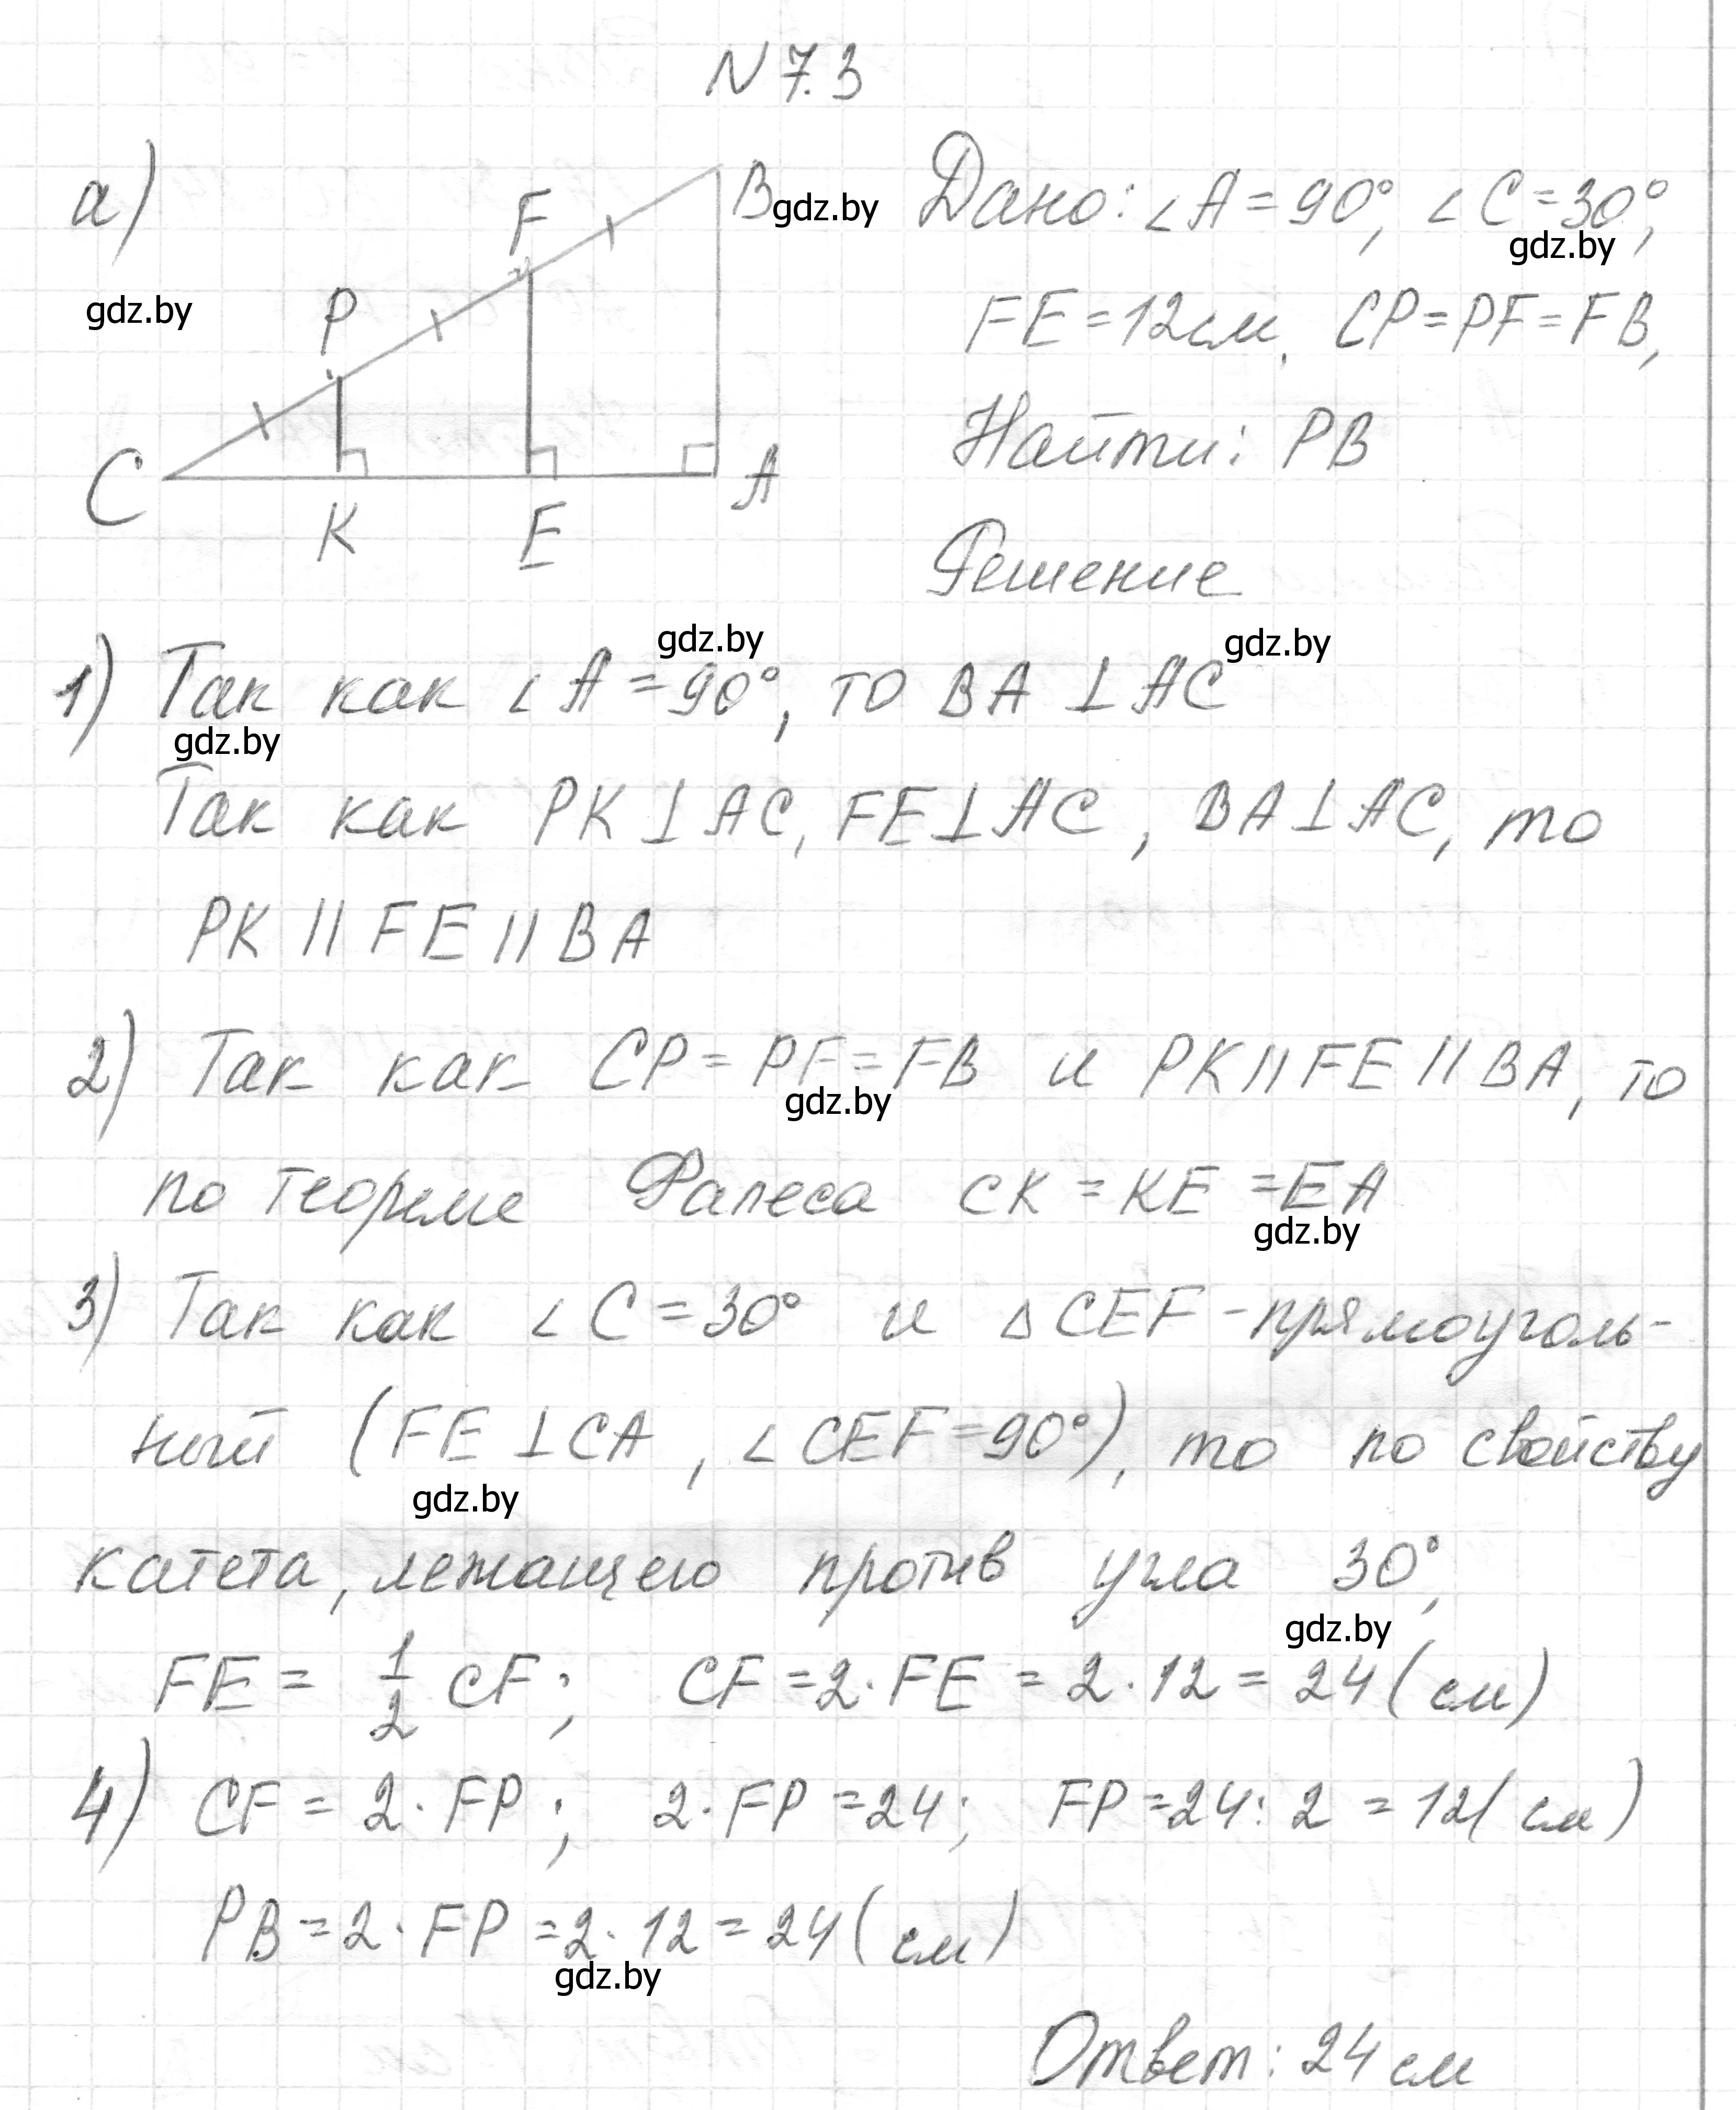 N 7.3
а)
B gdz.by
Дано: ∠A = 90°, ∠C = 30°,
gdz.by
F
gdz.by
P
FE = 12см, CP = PF = FB,
Найти: PB
C
A
K
E
Решение
gdz.by gdz.by
1) Так как ∠A = 90°, то BA ⊥ AC
gdz.by
Так как PK ⊥ AC, FE ⊥ AC, BA ⊥ AC, то
PK || FE || BA
2) Так как CP = PF = FB и PK || FE || BA, то
gdz.by
по теореме Фалеса CK = KE = EA
gdz.by
3) Так как ∠C = 30° и △CEF - прямоуголь-
ный (FE ⊥ CA, ∠CEF = 90°), то по свойству
gdz.by
катета, лежащего против угла 30°,
gdz.by
FE = 1/2 CF; CF = 2·FE = 2·12 = 24 (см)
4) CF = 2·FP; 2·FP = 24; FP = 24:2 = 12 (см)
PB = 2·FP = 2·12 = 24 (см)
gdz.by
Ответ: 24 см